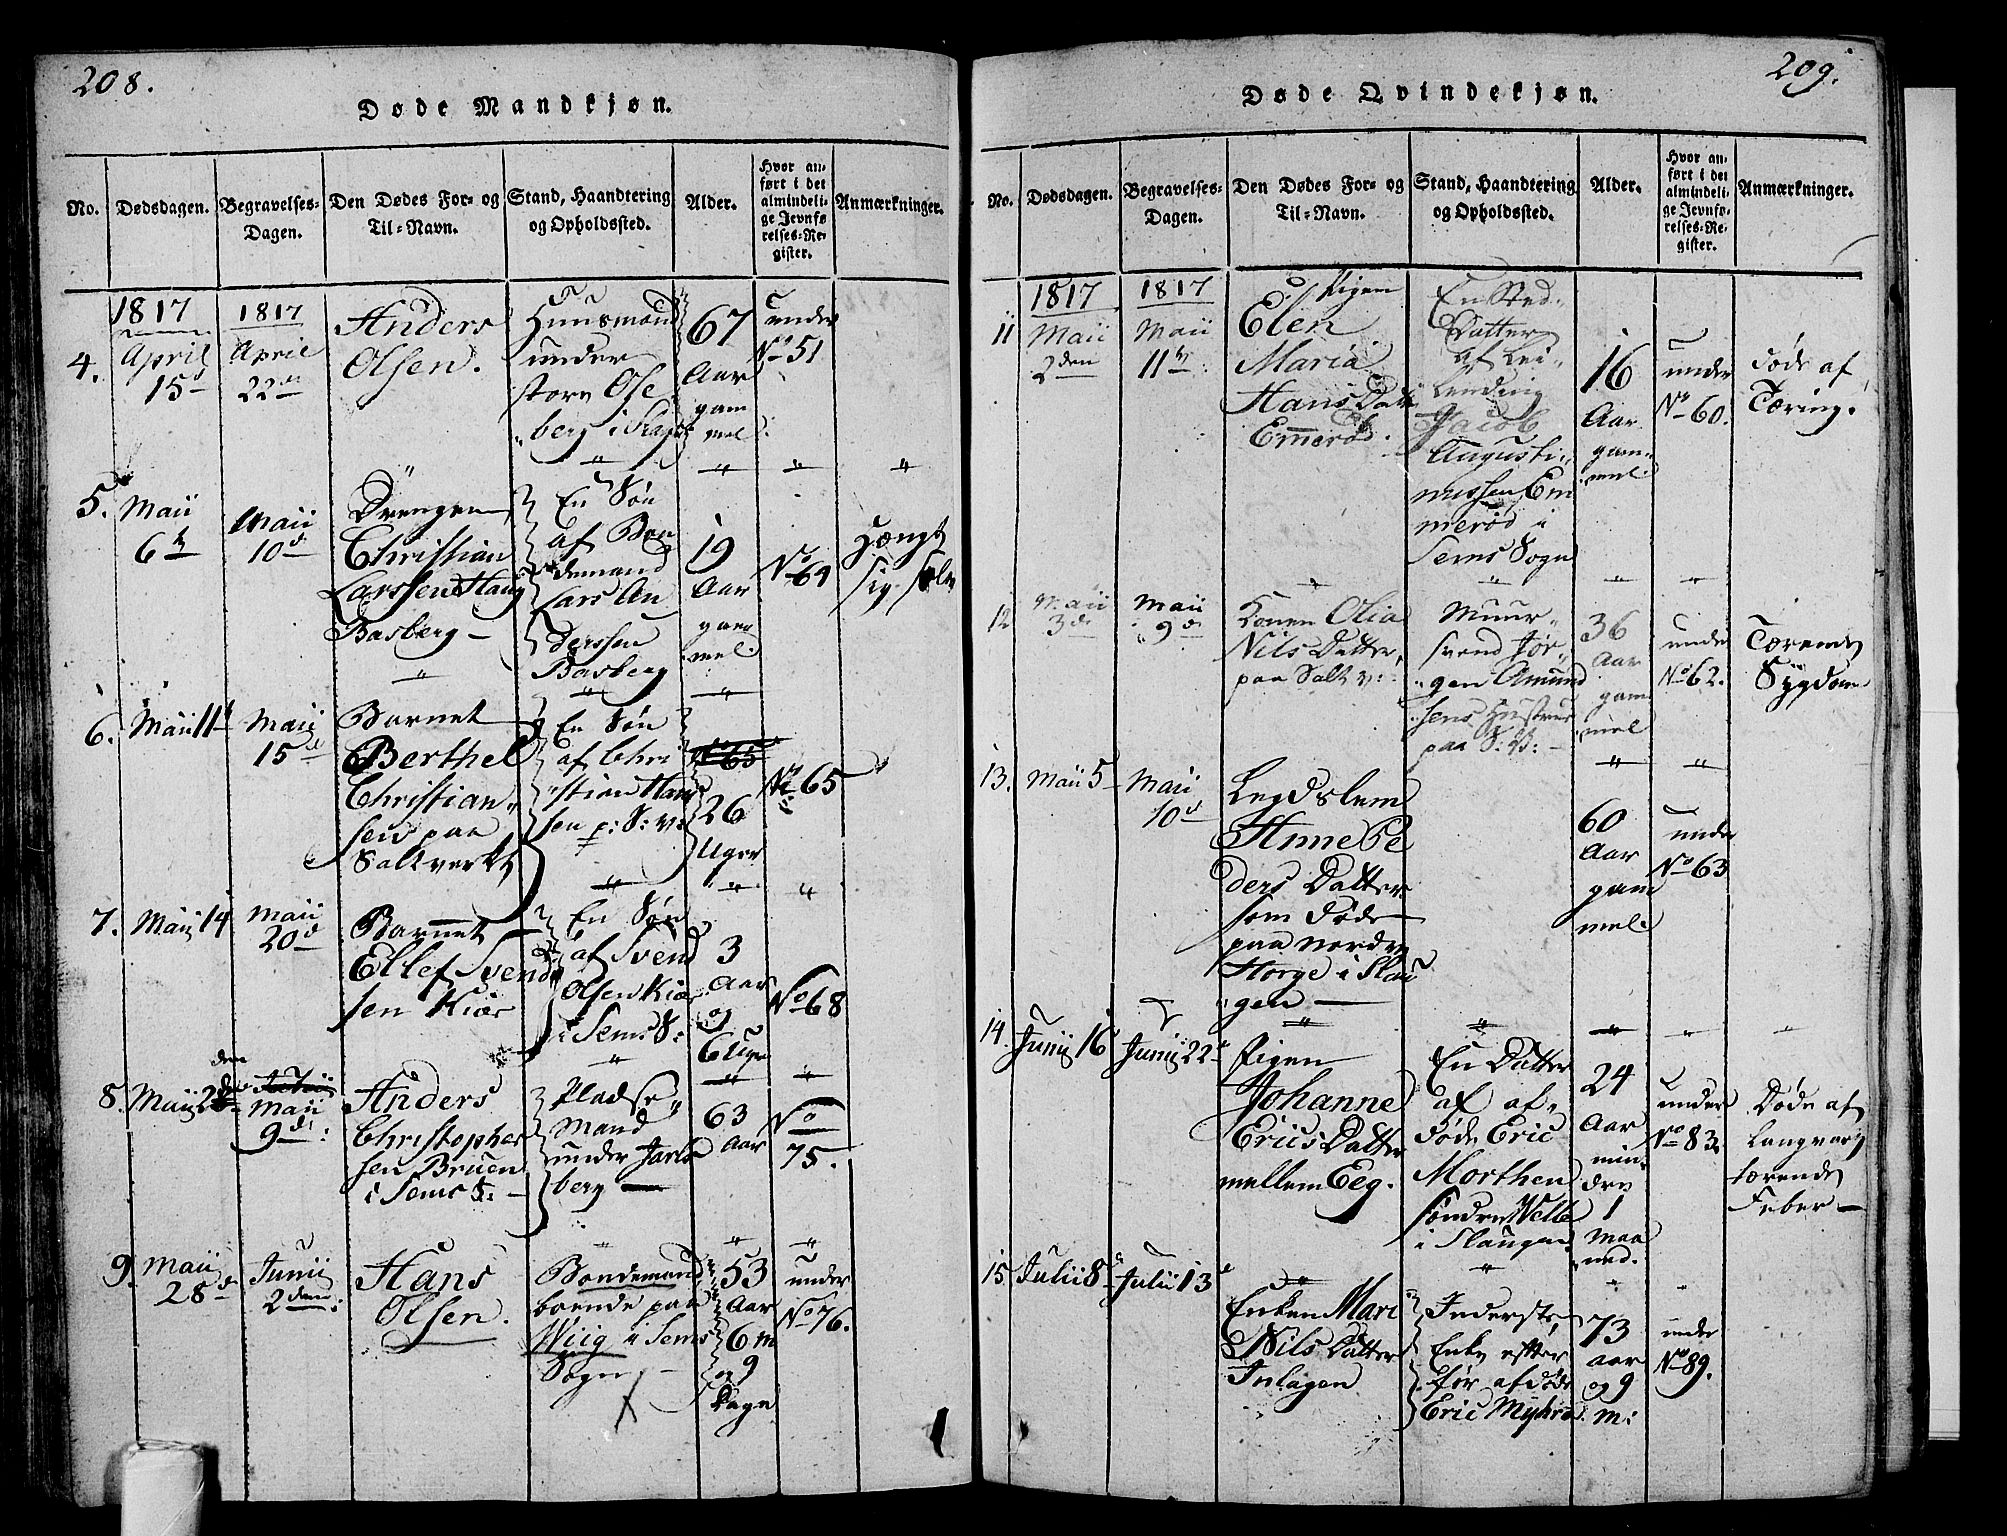 208.
Døde Mandkjøn.
No.
Dødsdagen.
Begravelses-
Dagen.
Den Dødes For- og
Til-Navn.
Stand, Haandtering
og Opholdssted.
Alder.
Hvor an-
ført i det
almindeli-
ge Jevnfø-
relses-Re-
gister.
Anmærkninger.
4.
1817
April
15 d
1817
April
22 d
Anders
Olsen.
Huusmand
under
store Ose
berg i
67
Aar
gam
mel.
under
No 51
5.
Maii
6 t
Maii
10 d
Drengen
Christian
Larssen Haug
Basberg
En Søn
af Bon
demand
Lars An
derssen
Basberg
19
Aar
gam
mel
No 64
Hængt
sig selv
6.
Maii 11 t
Maii
15 d
Barnet
Berthel
Christian
sen paa
Saltverk
En Søn
af Chri
stian Han
sen p: S: v:
No 65
26
Uger
No 65
7.
Maii 14
Maii
20 d
Barnet
Ellef Svend
sen Kiær
En Søn
af Svend
Olsen Kiær
i Sems S:
3
Aar
og
6 Uger
No 68
8.
Maii
Maii
9 d:
Anders
Christopher
sen Bruen
i Sems S:
Pladse
Mand
under Jarls
berg
63
Aar
No
75.
9.
Maii
28 d
Junii
2 den:
Hans
Olsen.
Bondemand
boende paa
Wiig i Sems
Sogn
53
Aar
6 m
og 9
Dage
under
No 76.
209.
Døde Qvindekjøn.
No.
Dødsdagen.
Begravelses-
Dagen.
Den Dødes For- og
Til-Navn.
Stand, Haandtering
og Opholdssted.
Alder.
Hvor an-
ført i det
almindeli-
ge Jevnfø-
relses-Re-
gister.
Anmærkninger.
11
1817
Maii
2 den
1817
Maii
11 t:
Pigen
Elen
Maria
Hans Datt
Emmerød.
En Sted-
Datter
af Lei-
lending
Jacob
Augusti-
nussen Em
merød i
Sems Sogn
16
Aar
gam-
mel
under
No 60.
Døde af
Tæring.
12
Maii
3 d
Maii
9 d
Konen Olia
Nils Datter
paa Salt v:
Muur-
svend Jør-
gen Amund
sens Hustrue
paa S: v:
36
Aar
gam
mel
under
No 62.
Tærende
Sygdom
13.
Maii 5
Maii
10 d
Legdslem
Anne Pe
ders Datter
som døde
paa nordre
Horge i Slau
gen
60
Aar
gam
mel.
under
No 63
14.
Junii 16
Junii 22 d
Pigen
Johanne
Erics Datter
mellem Eeg.
En Datter
af af-
døde Eric
Morthen
søndre Welle
i Slaugen
24
Aar
min-
dre
1
Maa
ned.
under
No 83.
Døde af
Langvarig
tærende
Feber
15.
Julii 8 d
Julii 13 d
Enken Mari
Nils Datter
Inlagen
Inderste,
Enke efter
før afdøde
Eric Myhre
73
aar
og 9
m:
under
No 89.